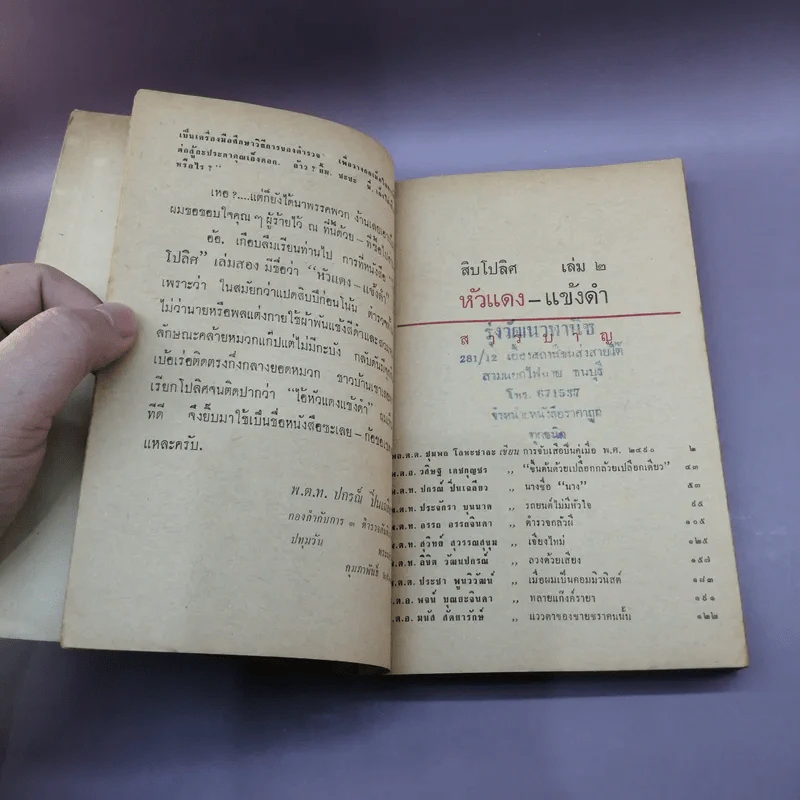 เป็นเครื่องมือศึกษาวิธีการของตำรวจ
หรือไร ?"
เหอ ?....แต่ก็ยังได้นาพรรคพวก
ผมขอขอบใจคุณ ๆ ผู้ร้ายไว้ ณ ที่นี้ด้วย –
อ้อ, เกือบลืมเรียนท่านไป การที่หนังสือ
โปลิศ" เล่มสอง มีชื่อว่า "หัวแดง – แข้งดำ"
เพราะว่า ในสมัยกว่าแปดสิบปีก่อนโน้น
ไม่ว่านายหรือพลแต่งกายใช้ผ้าพันแข้งสีดำและ
ลักษณะคล้ายหมวกแก๊ปแต่ไม่มีกะบัง
เบ้อเร่อติดตรงกึ่งกลางยอดหมวก
เรียกโปลิศจนติดปากว่า "ไอ้หัวแดงแข้งดำ"
ที่ดี จึงยิ้บมาใช้เป็นชื่อหนังสือซะเลย –
แหละครับ.
พ.ต.ท. ปกรณ์
กองกำกับการ ๓
ปทุมวัน
กุมภาพันธ์
สิบโปลิศ เล่ม ๒
หัวแดง – แข้งดำ
ส า ร บ า ญ
รุ่งวัฒนวทานิช
281/12
สามแยกไฟฉาย ธนบุรี
โทร. 671537
จำหน่ายหนังสือราคาถูก
ทุกชนิด
พล.ต.ต. ชุมพล โลหะชาละ เขียน การจับเสือปืนคู่เมื่อ พ.ศ. ๒๔๙๐ ๒
พ.ต.อ. วสิษฐ เดชกุญชร ,, "ขึ้นต้นด้วยเปลือกกล้วยเปลือกเดียว" ๔๓
พ.ต.ท. ปกรณ์ ปิ่นเฉลียว ,, นางชื่อ "นาง" ๕๓
พ.ต.ท. ประจักรา บุนนาค ,, รถยนต์ไม่มีหัวใจ ๙๕
พ.ต.ท. อรรถ อรรถจินดา ,, ตำรวจกลัวผี ๑๐๕
พ.ต.ท. สุวิทย์ สุวรรณสุขุม ,, เชียงใหม่ ๑๒๕
พ.ต.ท. ลิขิต วัฒนปกรณ์ ,, ลวงด้วยเสียง ๑๕๗
พ.ต.ต. ประชา พูนวิวัฒน์ ,, เมื่อผมเป็นคอมมิวนิสต์ ๑๘๓
ร.ต.อ. พจน์ บุณยะจินดา ,, ทลายแก๊งค์รายา ๑๙๑
ร.ต.อ. มนัส สัตยารักษ์ ,, แววตาของชายชราคนนั้น ๑๒๒